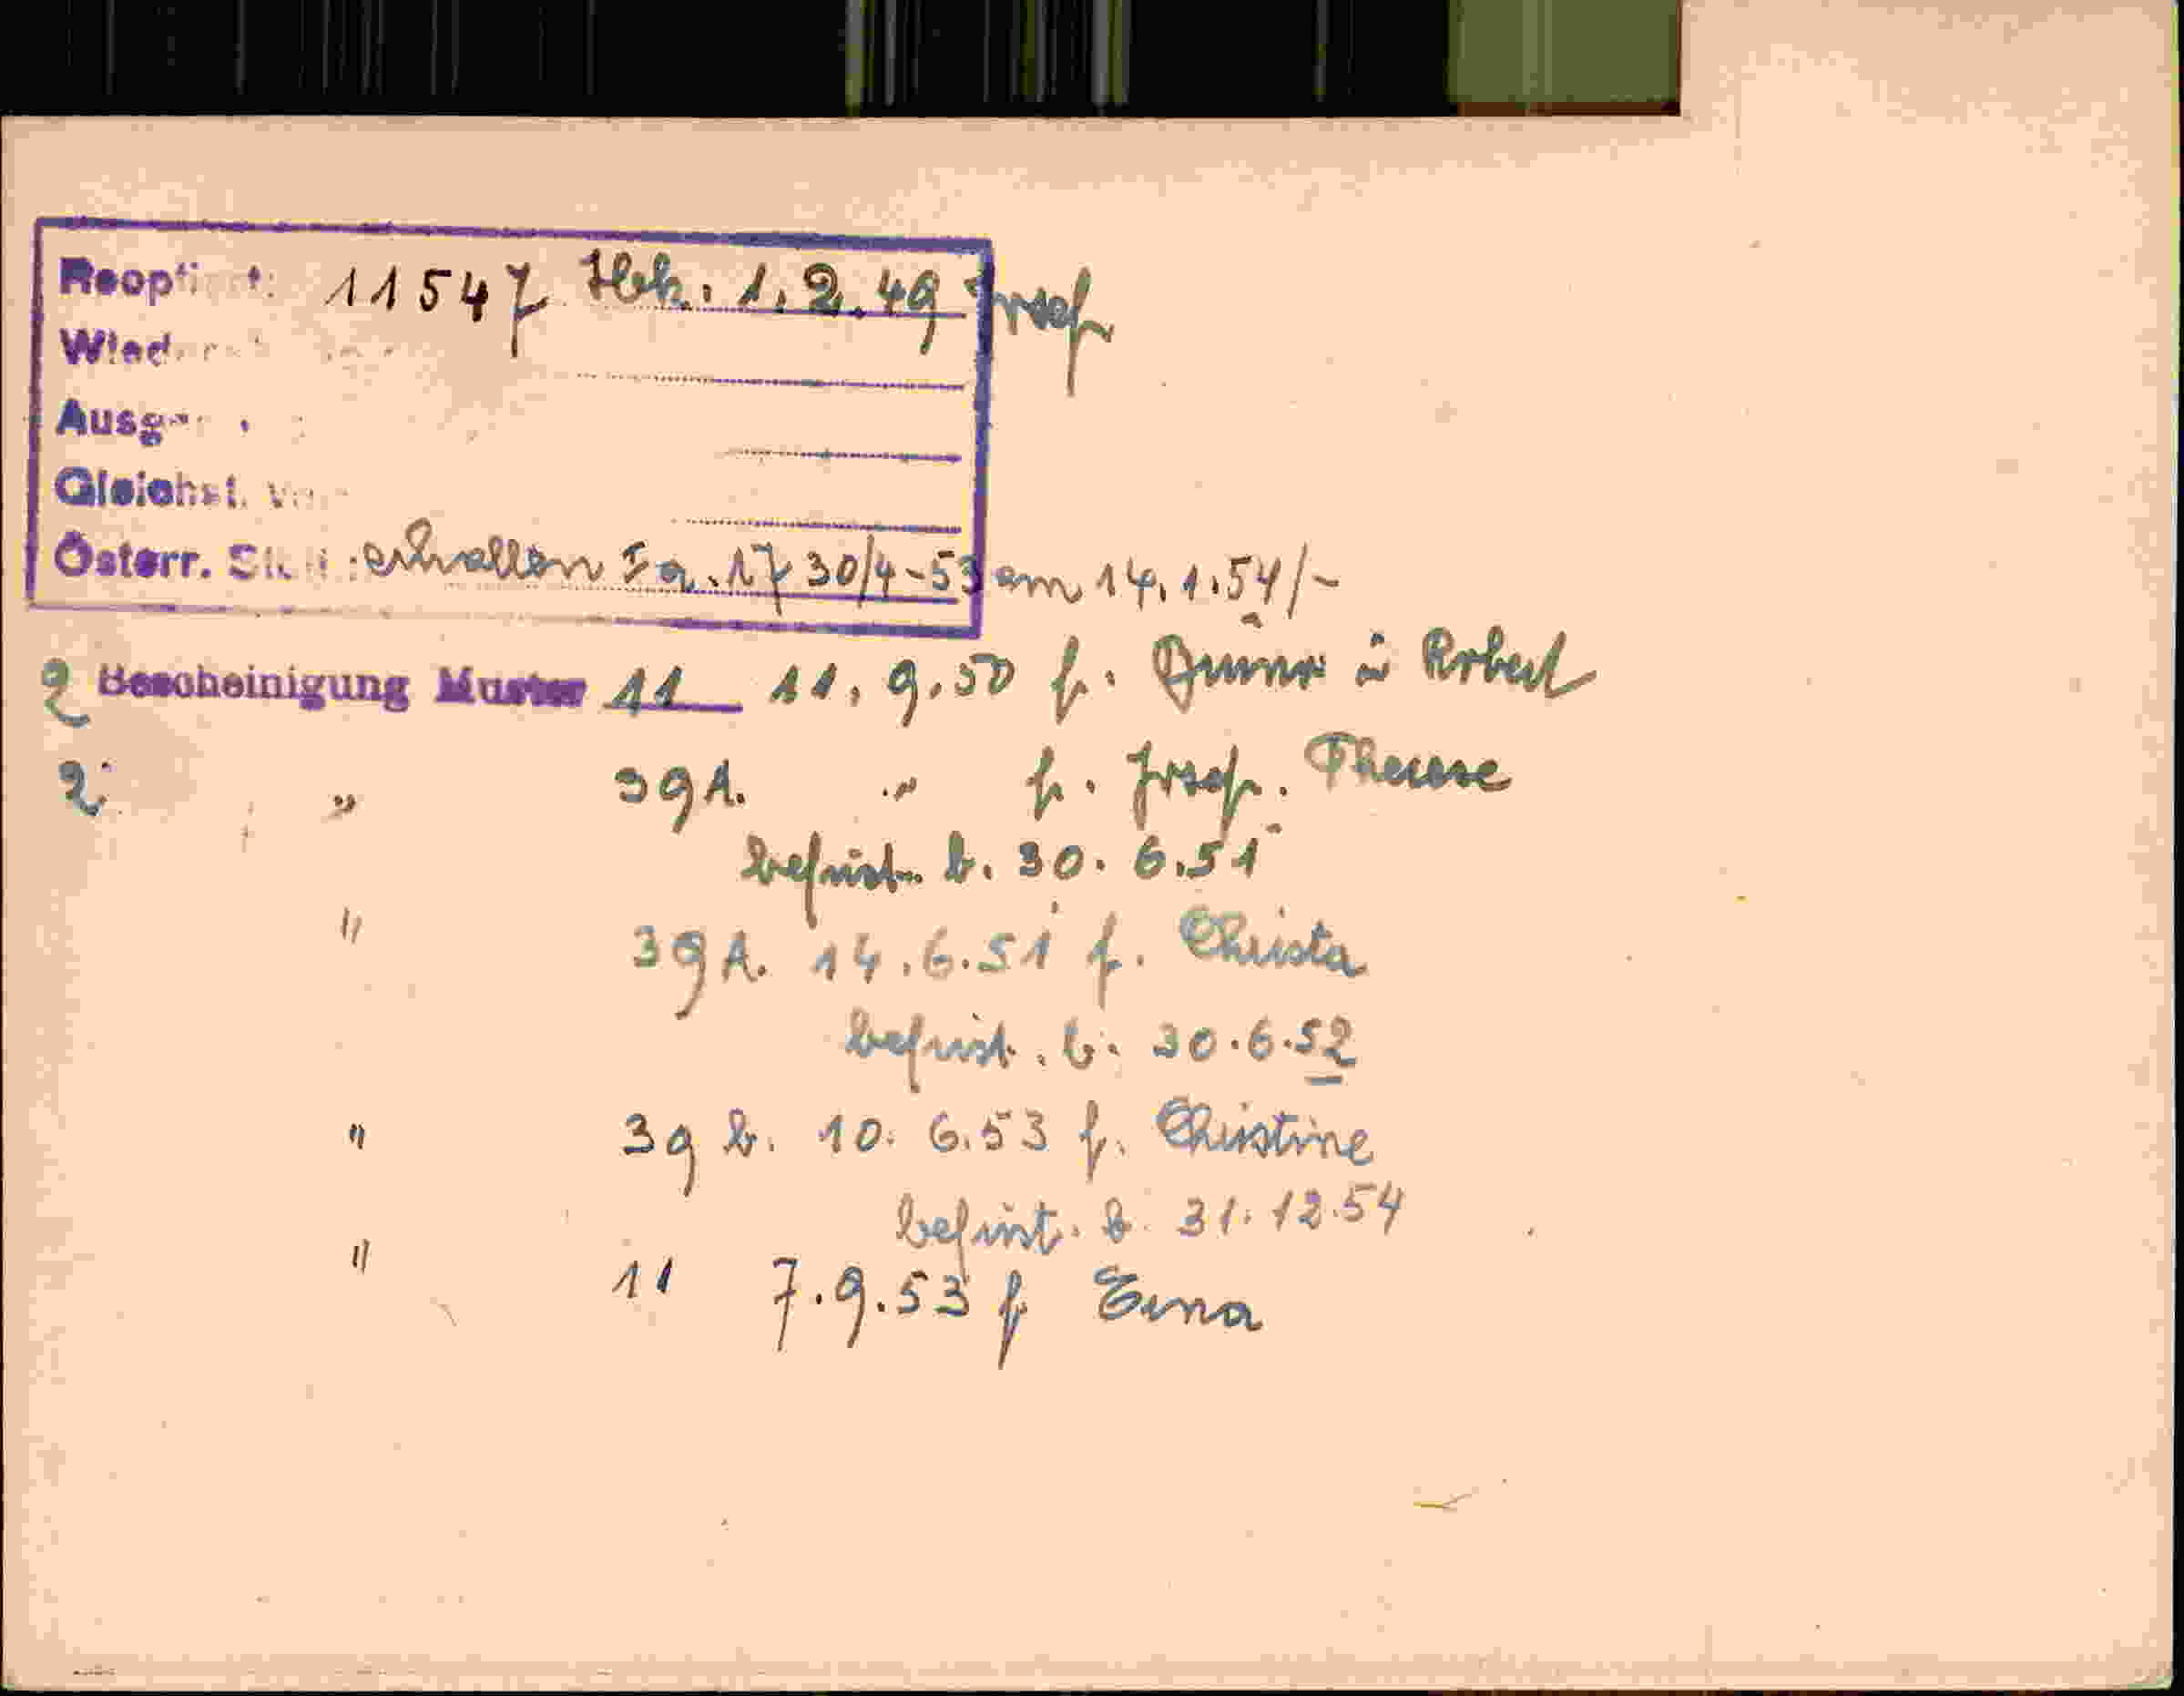 11547 Hbk. 1.2.49 Josef
Österr. erhalten 17 30/4-53 am 14.1.54/-
2 Bescheinigung Muster 11 11.9.50 f. u Robert
2 " 39A. " f. Josef. Therese
befrist. b. 30.6.51
" 39A. 14.6.51 f. Christa
befrist. b. 30.6.52
" 39 b. 10.6.53 f. Christine
befrist. b. 31.12.54
" 11 7.9.53 f Erna